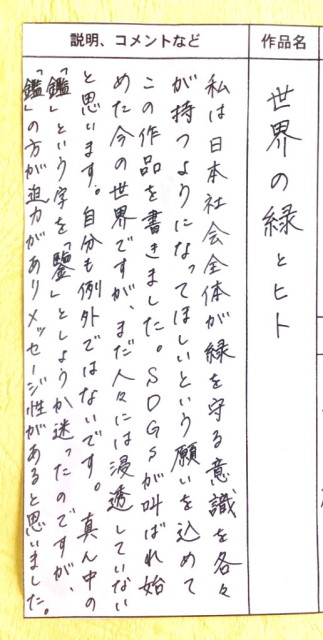 作品名
世界の緑とヒト
説明、コメントなど
私は日本社会全体が緑を守る意識を各々
が持つようになってほしいという願いを込めて
この作品を書きました。SDGSが叫ばれ始
めた今の世界ですが、まだ人々には浸透していない
と思います。自分も例外ではないです。真ん中の
「鑑」という字を「鑒」としようか迷ったのですが、
「鑑」の方が迫力がありメッセージ性があると思いました。